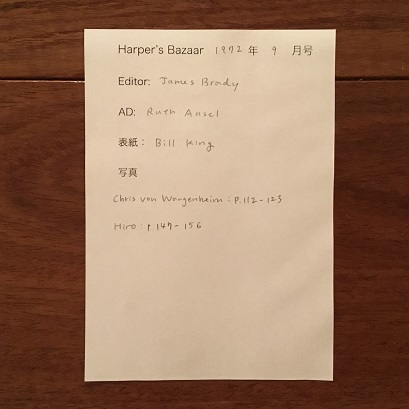 Harper's Bazaar 1972 年 9 月号
Editor: James Brady
AD: Ruth Ansel
表紙： Bill King
写真
Chris von Wangenheim : P.112-123
Hiro : P 147-156